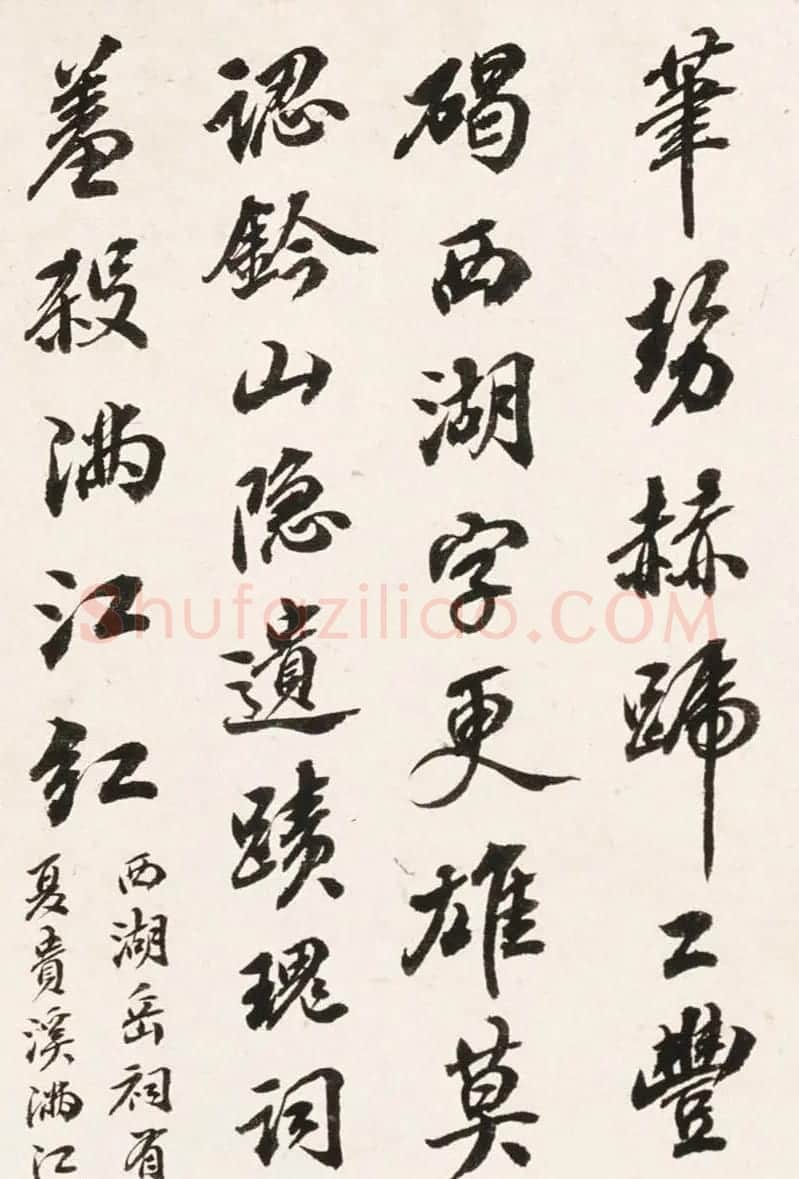 筆勢赫蹄工豐
碣西湖字更雄莫
認鈐山隐遺蹟瑰詞
羞殺滿江紅
西湖岳祠有
夏貴溪滿江
Shufaziliao.COM